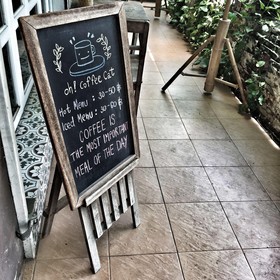 oh! coffee Cat
Hot Menu : 30-50 ฿
Iced Menu : 30-60 ฿
COFFEE IS
THE MOST IMPORTANT
MEAL OF THE DAY